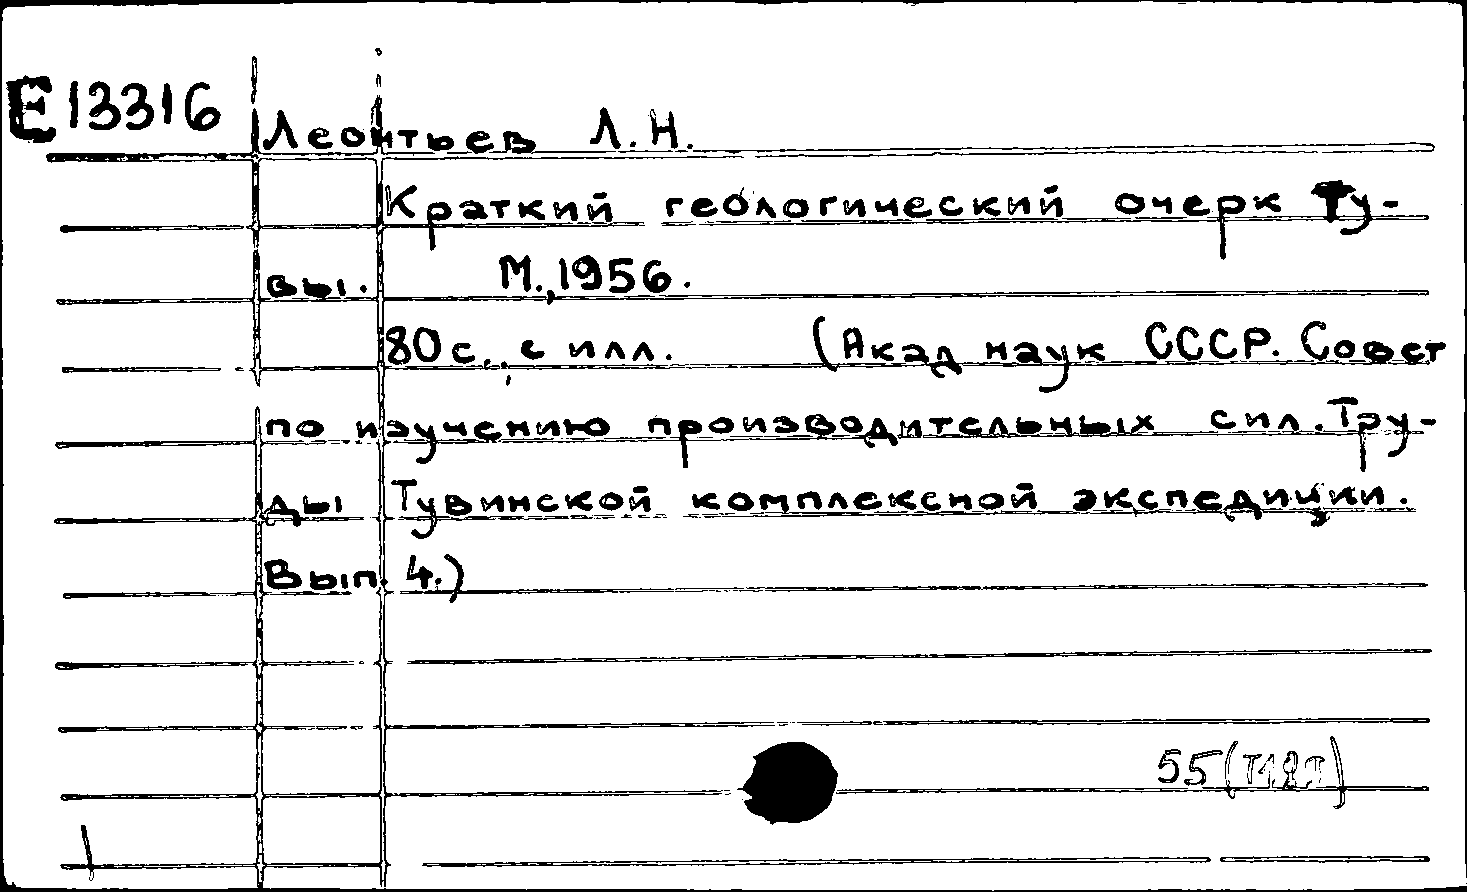 Е13316
Леонтьев Л.Н.
Краткий геологический очерк Ту-
вы. М.,1956.
80с., с илл. (Акад наук СССР. Совет
по изучению производительных сил. Тру-
ды Тувинской комплексной экспедиции.
Вып. 4.)